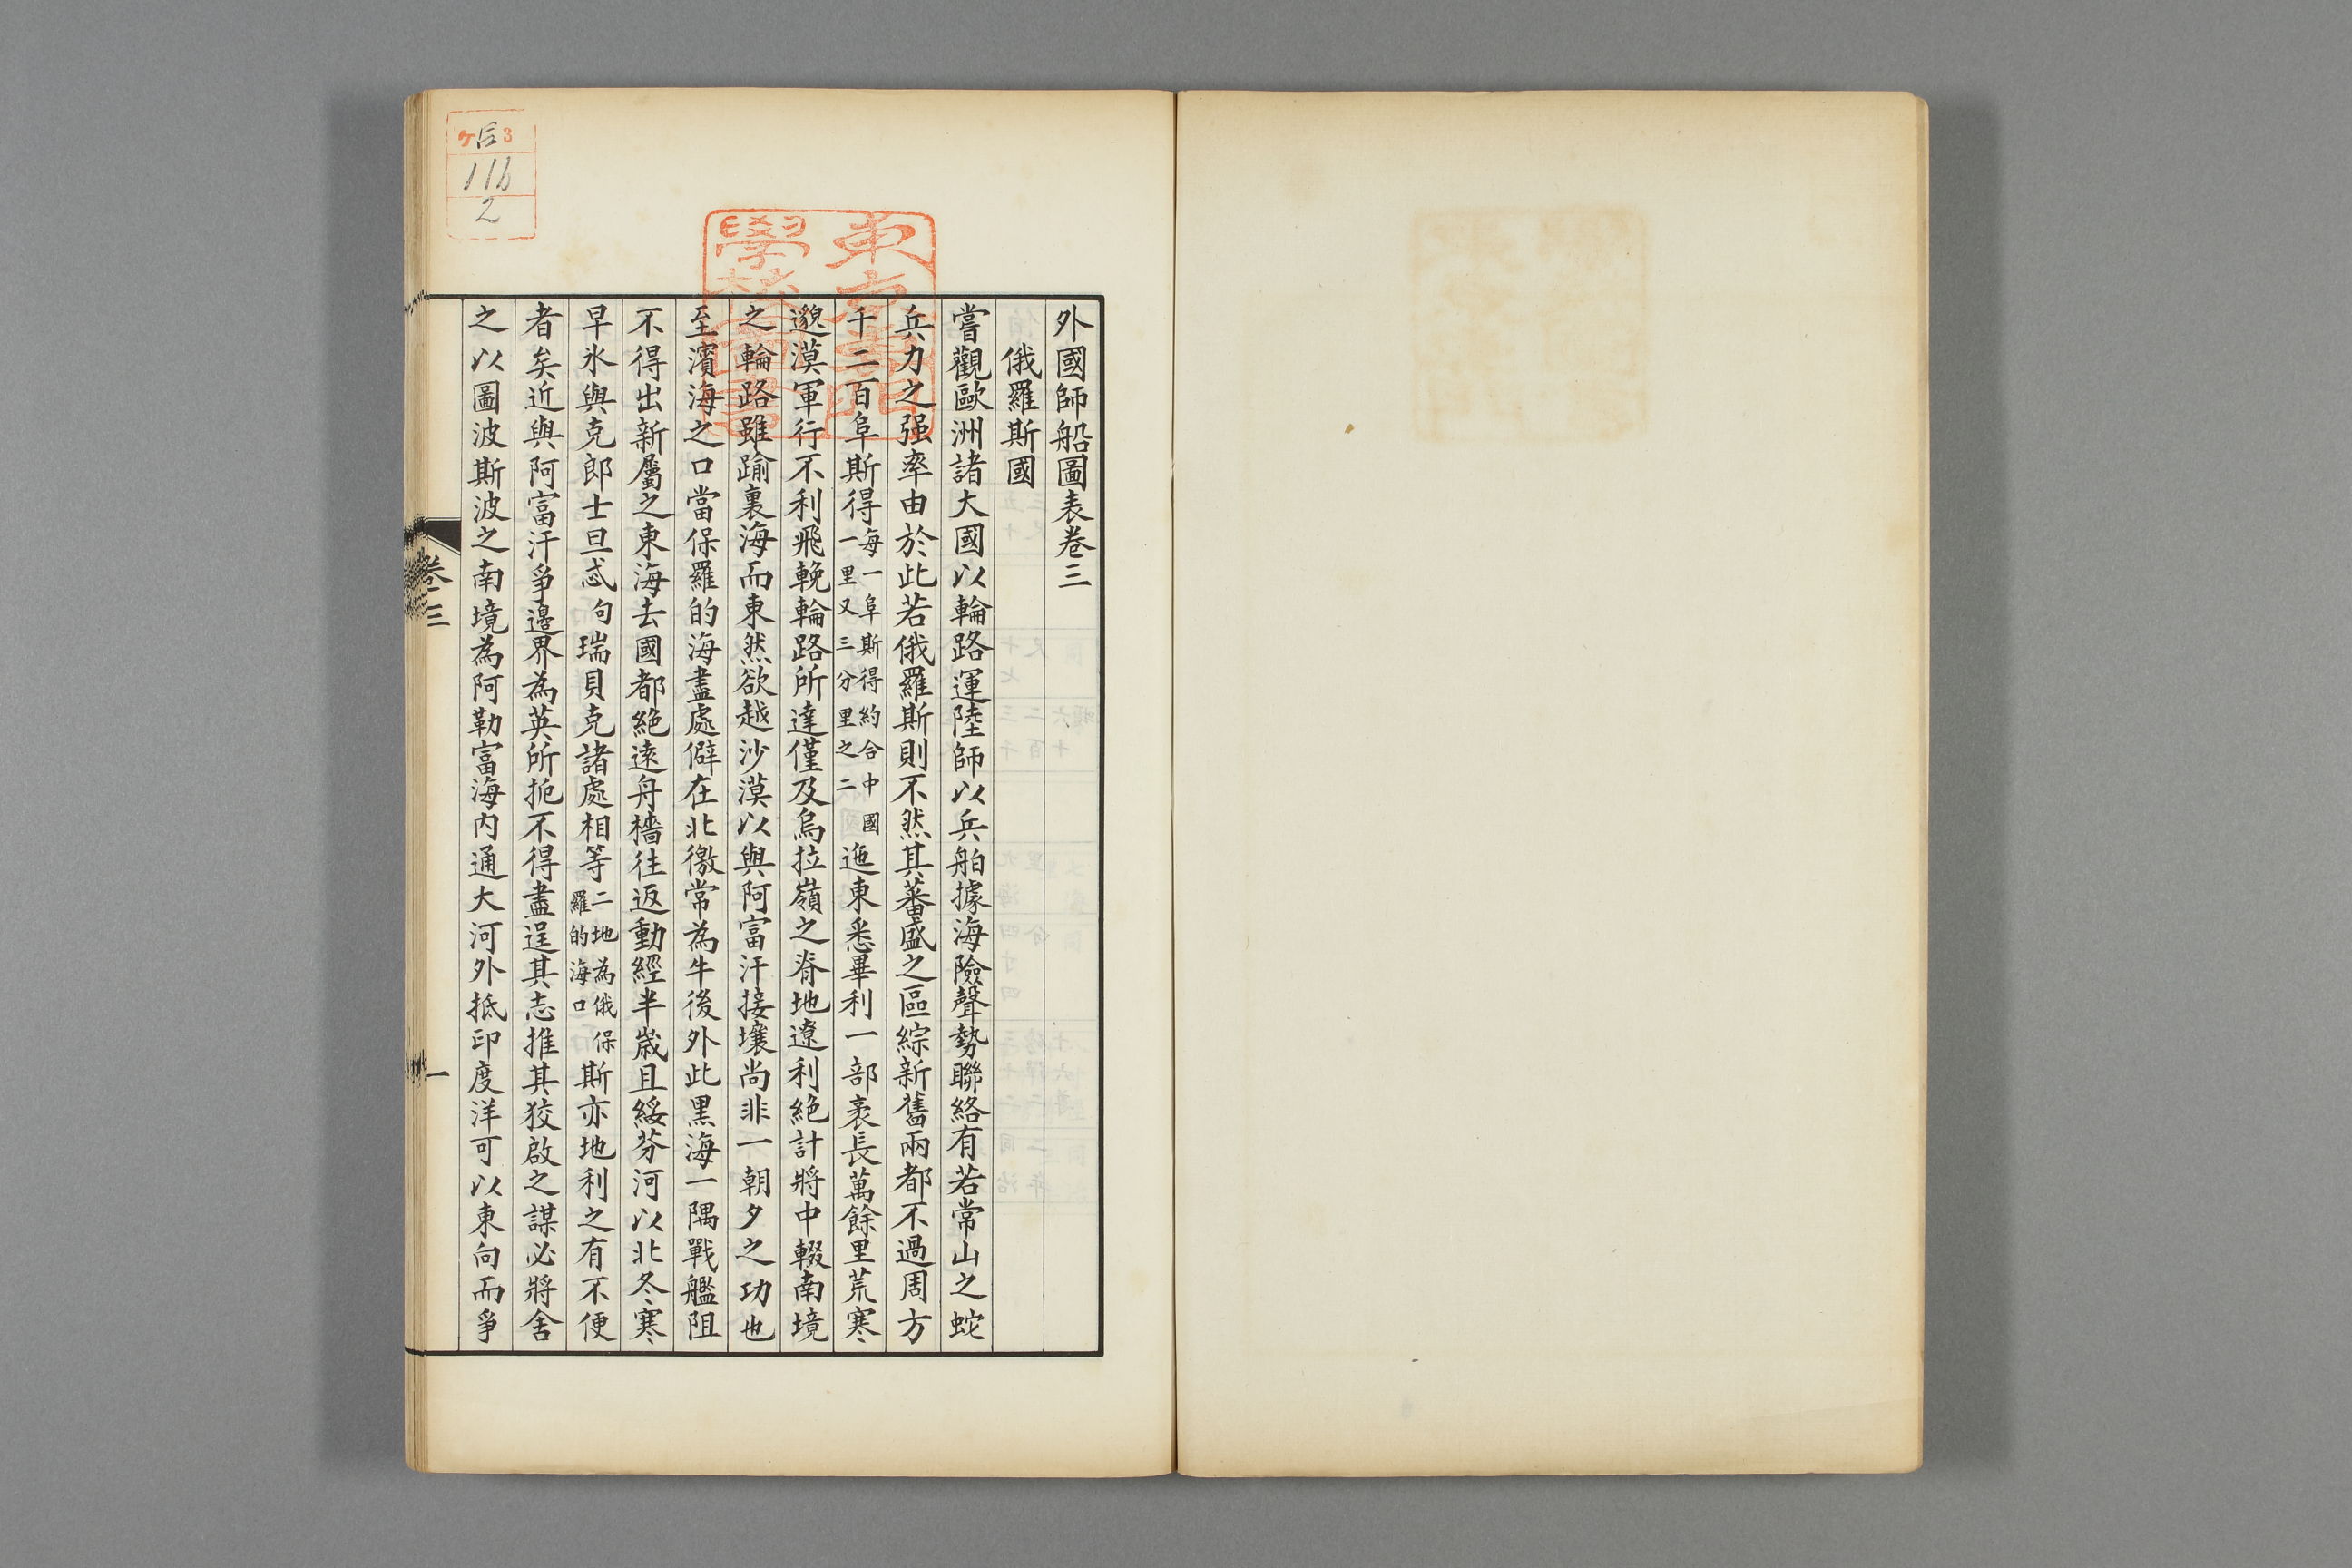 外國師船圖表卷三
俄羅斯國
嘗觀歐洲諸大國以輪路運陸師以兵舶據海險聲勢聯絡有若常山之蛇
兵力之强率由於此若俄羅斯則不然其蕃盛之區綜新舊兩都不過周方
千二百阜斯得每一阜斯得約合中國一里又三分里之二迤東悉畢利一部袤長萬餘里荒寒
邈漠軍行不利飛輓輪路所達僅及烏拉嶺之脊地遼利絶計將中輟南境
之輪路雖踰裏海而東然欲越沙漠以與阿富汗接壤尚非一朝夕之功也
至濱海之口當保羅的海盡處僻在北徼常為牛後外此黑海一隅戰艦阻
不得出新屬之東海去國都絶遠舟檣往返動經半歳且綏芬河以北冬寒
早氷與克郎士旦忒句瑞貝克諸處相等二地為俄保羅的海口斯亦地利之有不便
者矣近與阿富汗爭邊界為英所扼不得盡逞其志推其狡啟之謀必將舍
之以圖波斯波之南境為阿勒富海内通大河外抵印度洋可以東向而爭
卷三
一
東
學
ケ后3
116
2